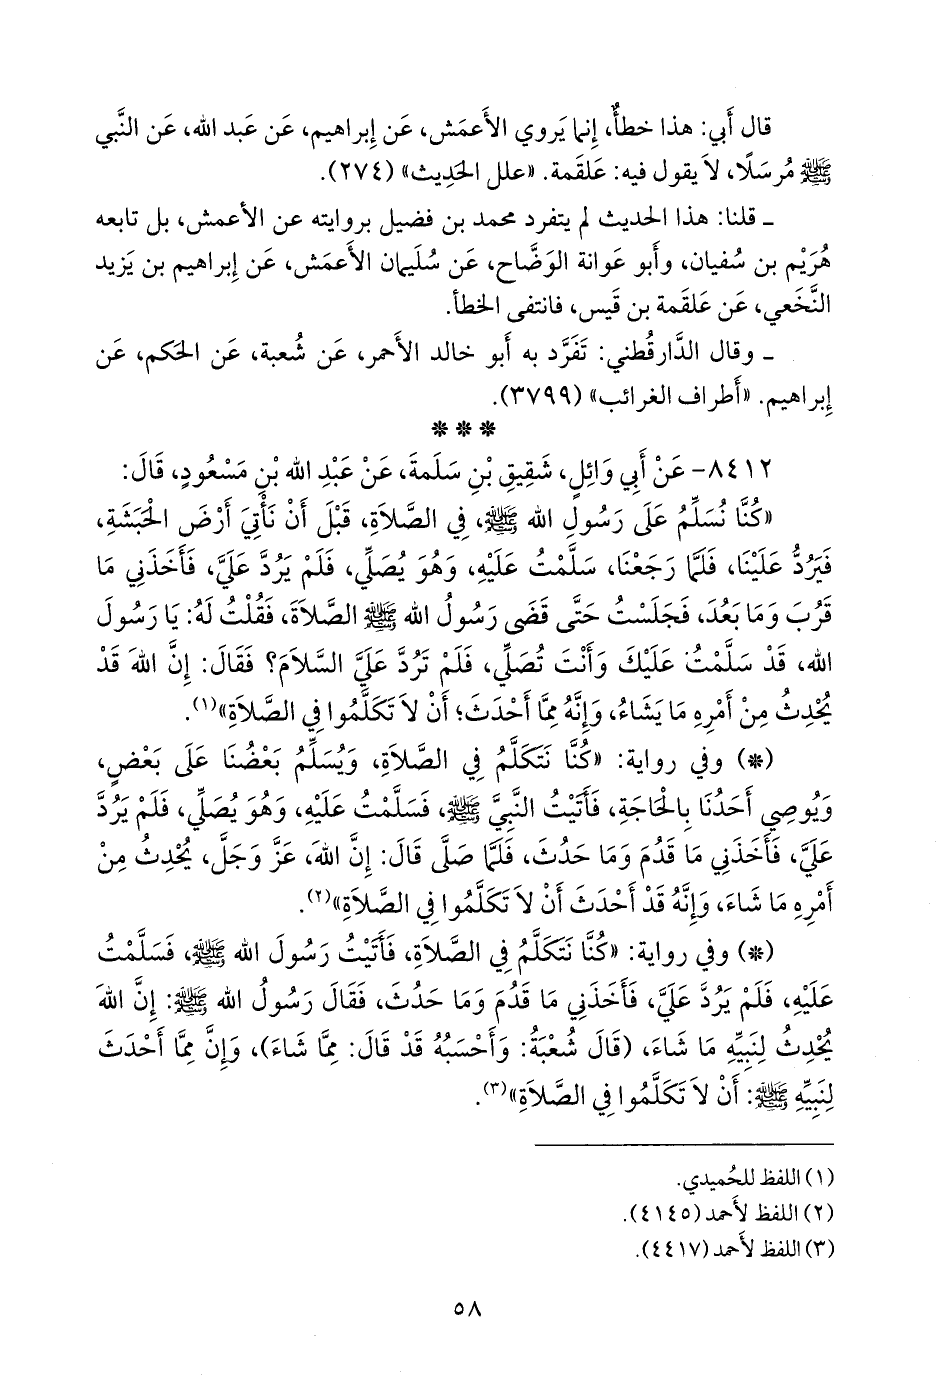 قال أَبي: هذا خطأٌ، إِنما يَروي الأَعمَش، عَن إِبراهيم، عَن عَبد الله، عَن النَّبي
ﷺ مُرسَلًا، لاَ يقول فيه: عَلقَمة. «علل الحَدِيث» (٢٧٤).
ـ قلنا: هذا الحديث لم يتفرد محمد بن فضيل بروايته عن الأعمش، بل تابعه
هُرَيْم بن سُفيان، وأَبو عَوانة الوَضَّاح، عَن سُليمان الأَعمَش، عَن إِبراهيم بن يَزيد
النَّخَعي، عَن عَلقَمة بن قَيس، فانتفى الخطأ.
ـ وقال الدَّارقُطني: تَفَرَّد به أَبو خالد الأَحمر، عَن شُعبة، عَن الحَكم، عَن
إِبراهيم. «أَطراف الغرائب» (٣٧٩٩).
* * *
٨٤١٢- عَنْ أَبِي وَائِلٍ، شَقِيقِ بْنِ سَلَمةَ، عَنْ عَبْدِ الله بْنِ مَسْعُودٍ، قَالَ:
«كُنَّا نُسَلِّمُ عَلَى رَسُولِ الله ﷺ، فِي الصَّلاَةِ، قَبْلَ أَنْ نَأْتِيَ أَرْضَ الْحَبَشَةِ،
فَيَرُدُّ عَلَيْنَا، فَلَمَّا رَجَعْنَا، سَلَّمْتُ عَلَيْهِ، وَهُوَ يُصَلِّي، فَلَمْ يَرُدَّ عَلَيَّ، فَأَخَذَنِي مَا
قَرُبَ وَمَا بَعُدَ، فَجَلَسْتُ حَتَّى قَضَى رَسُولُ الله ﷺ الصَّلاَةَ، فَقُلْتُ لَهُ: يَا رَسُولَ
الله، قَدْ سَلَّمْتُ عَلَيْكَ وَأَنْتَ تُصَلِّي، فَلَمْ تَرُدَّ عَلَيَّ السَّلاَمَ؟ فَقَالَ: إِنَّ اللهَ قَدْ
يُحْدِثُ مِنْ أَمْرِهِ مَا يَشَاءُ، وَإِنَّهُ مِمَّا أَحْدَثَ؛ أَنْ لاَ تَكَلَّمُوا فِي الصَّلاَةِ»(١).
(*) وفي رواية: «كُنَّا نَتَكَلَّمُ فِي الصَّلاَةِ، وَيُسَلِّمُ بَعْضُنَا عَلَى بَعْضٍ،
وَيُوصِي أَحَدُنَا بِالْحَاجَةِ، فَأَتَيْتُ النَّبِيَّ ﷺ، فَسَلَّمْتُ عَلَيْهِ، وَهُوَ يُصَلِّي، فَلَمْ يَرُدَّ
عَلَيَّ، فَأَخَذَنِي مَا قَدُمَ وَمَا حَدُثَ، فَلَمَّا صَلَّى قَالَ: إِنَّ اللهَ، عَزَّ وَجَلَّ، يُحْدِثُ مِنْ
أَمْرِهِ مَا شَاءَ، وَإِنَّهُ قَدْ أَحْدَثَ أَنْ لاَ تَكَلَّمُوا فِي الصَّلاَةِ»(٢).
(*) وفي رواية: «كُنَّا نَتَكَلَّمُ فِي الصَّلاَةِ، فَأَتَيْتُ رَسُولَ الله ﷺ، فَسَلَّمْتُ
عَلَيْهِ، فَلَمْ يَرُدَّ عَلَيَّ، فَأَخَذَنِي مَا قَدُمَ وَمَا حَدُثَ، فَقَالَ رَسُولُ الله ﷺ: إِنَّ اللهَ
يُحْدِثُ لِنَبِيِّهِ مَا شَاءَ، (قَالَ شُعْبَةُ: وَأَحْسَبُهُ قَدْ قَالَ: مِمَّا شَاءَ)، وَإِنَّ مِمَّا أَحْدَثَ
لِنَبِيِّهِ ﷺ: أَنْ لاَ تَكَلَّمُوا فِي الصَّلاَةِ»(٣).
(١) اللفظ للحُميدي.
(٢) اللفظ لأَحمد (٤١٤٥).
(٣) اللفظ لأَحمد (٤٤١٧).
٥٨